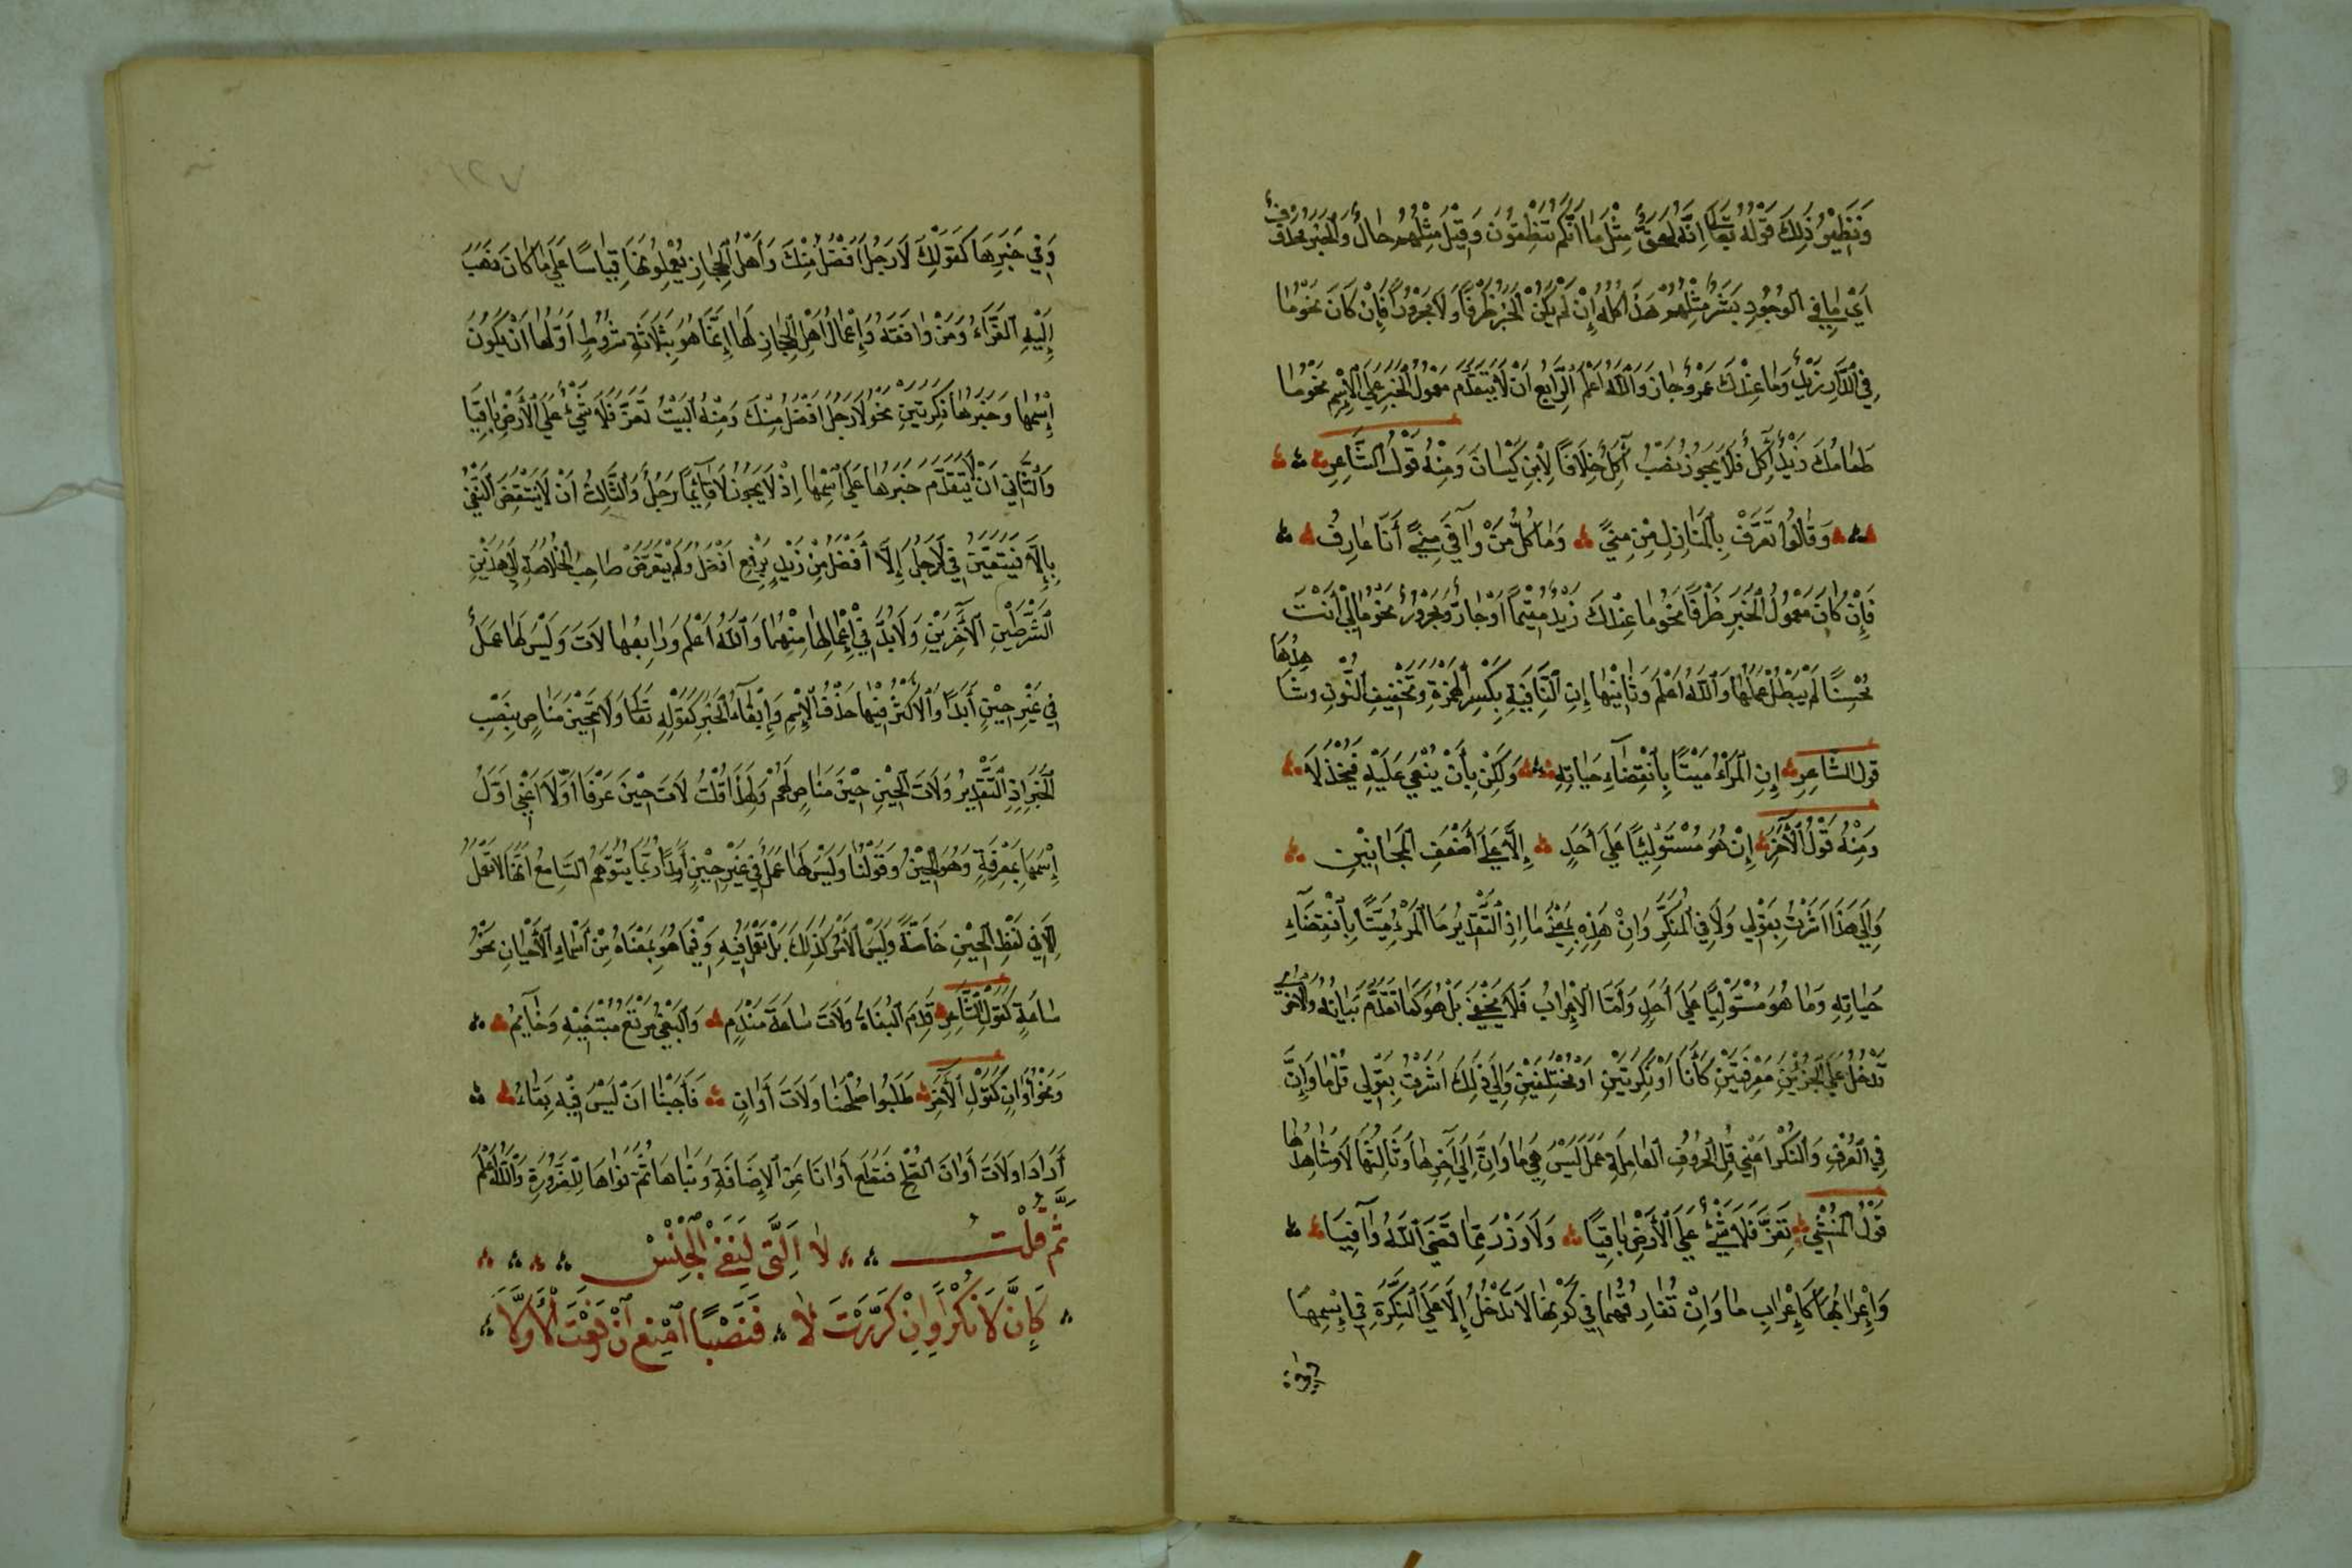 وَنَظِيْرُ ذٰلِكَ قَوْلُهُ تَعَالَى إِنَّهُ لَحَقٌّ مِثْلَ مَا أَنَّكُمْ تَنْطِقُوْنَ وَقِيْلَ مِثْلُهُمْ حَالٌ وَالْخَبَرُ مَحْذُوْفٌ
أَيْ مَا فِي الوُجُودِ بَشَرٌ مِثْلُهُمْ هَذَا كُلُّهُ إِنْ لَمْ يَكُنْ الْخَبَرُ ظَرْفًا وَلَا مَجْرُوْرًا فَإِنْ كَانَ نَحْوُ مَا
فِي الدَّارِ زَيْدٌ وَمَا عِنْدَكَ عَمْرٌو جَازَ وَاللّٰهُ أَعْلَمُ الرَّابِعُ أَنْ لَا يَتَقَدَّمَ مَعْمُولُ الْخَبَرِ عَلَى الْإِسْمِ نَحْوُ مَا
طَعَامَكَ زَيْدٌ آكِلٌ فَلَا يَجُوزُ نَصْبُ آكِلٌ خِلَافًا لِابْنِ كَيْسَانَ وَمِنْهُ قَوْلُ الشَّاعِرِ
وَقَالُوا تَعَرَّفْ بِالْمَنَازِلِ مِنْ مِنًى وَمَا كُلُّ مَنْ وَافَى مِنًى أَنَا عَارِفُ
فَإِنْ كَانَ مَعْمُولُ الْخَبَرِ ظَرْفًا نَحْوُ مَا عِنْدَكَ زَيْدٌ مُقِيْمًا أَوْ جَارٌّ وَمَجْرُورٌ نَحْوُ مَا لِيْ أَنْتَ
مُحْسِنًا لَمْ يَبْطُلْ عَمَلُهَا وَاللّٰهُ أَعْلَمُ وَثَانِيْهَا إِنِ النَّافِيَةِ بِكَسْرِ الْهَمْزَةِ وَتَخْفِيفِ النُّونِ وَشَاهِدُهَا
قول الشَّاعِرِ إِنِ الْمَرْءُ مَيْتًا بِانْقِضَاءِ حَيَاتِهِ وَلَكِنْ بِأَنْ يُبْغَى عَلَيْهِ فَيُخْذَلَا
وَمِنْهُ قَوْلُ الْآخَرِ إِنْ هُوَ مُسْتَوْلِيًا عَلَى أَحَدٍ إِلَّا عَلَى أَضْعَفِ الْمَجَانِيْنِ
وَإِلَى هَذَا أَشَرْتُ بِقَوْلِي وَلَا فِي الْمُنَكَّرِ وَإِنْ هَذِهِ بِمَعْنَى مَا إِذِ التَّقْدِيرُ مَا الْمَرْءُ مَيْتًا بِانْقِضَاءِ
حَيَاتِهِ وَمَا هُوَ مُسْتَوْلِيًا عَلَى أَحَدٍ وَأَمَّا الْإِعْرَابُ فَلَا يَخْفَى بَلْ هُوَ كَمَا تَقَدَّمَ بَيَانُهُ
تَدْخُلُ عَلَى الْجُزْئَيْنِ مَعْرِفَتَيْنِ كَانَا أَوْ نَكِرَتَيْنِ أَوْ مُخْتَلِفَيْنِ وَإِلَى ذٰلِكَ أَشَرْتُ بِقَوْلِي قُلْ مَا وَإِنْ
فِي الْعُرْفِ وَالنُّكْرِ أَعْنِي قُلِ الْحُرُوفِ العَامِلَةِ عَمَلَ لَيْسَ هِيَ مَا وَإِنْ إِلَى آخِرِهَا وَثَالِثُهَا لَا وَشَاهِدُهَا
قَوْلُ الْمُنْشِي تَعَزَّ فَلَا شَيْءٌ عَلَى الْأَرْضِ بَاقِيًا وَلَا وَزَرٌ مِمَّا قَضَى اللّٰهُ وَاقِيَا
وَإِعْرَابُهَا كَإِعْرَابِ مَا وَإِنْ تُفَارِقُهُمَا فِي كَوْنِهَا لَا تَدْخُلُ إِلَّا عَلَى النَّكِرَةِ فِي إِسْمِهَا
وَفِي خَبَرِهَا كَقَوْلِكَ لَا رَجُلٌ أَفْضَلُ مِنْكَ وَأَهْلُ الْحِجَازِ يُعْمِلُونَهَا قِيَاسًا عَلَى مَا كَانَ ذَهَبَ
إِلَيْهِ الفَرَّاءُ وَمَنْ وَافَقَهُ وَإِعْمَالُ أَهْلِ الْحِجَازِ لَهَا إِنَّمَا هُوَ بِثَلَاثَةِ شُرُوطٍ أَوَّلُهَا أَنْ يَكُونَ
إِسْمُهَا وَخَبَرُهَا نَكِرَتَيْنِ نَحْوُ لَا رَجُلٌ أَفْضَلَ مِنْكَ وَمِنْهُ الْبَيْتُ تَعَزَّ فَلَا شَيْءٌ عَلَى الْأَرْضِ بَاقِيَا
وَالثَّانِي أَنْ لَا يَتَقَدَّمَ خَبَرُهَا عَلَى اسْمِهَا إِذْ لَا يَجُوزُ لَا قَائِمًا رَجُلٌ وَالثَّالِثُ أَنْ لَا يَنْتَقِضَ النَّفْيُ
بِإِلَّا فَيَتَعَيَّنُ فِي لَا رَجُلٌ إِلَّا أَفْضَلُ مِنْ زَيْدٍ بِرَفْعِ أَفْضَلُ وَلَمْ يَتَعَرَّضْ صَاحِبُ الْخُلَاصَةِ إِلَى هَذَيْنِ
الشَّرْطَيْنِ الْآخَرَيْنِ وَلَا بُدَّ فِي إِعْمَالِهَا مِنْهُمَا وَاللّٰهُ أَعْلَمُ وَرَابِعُهَا لَاتَ وَلَيْسَ لَهَا عَمَلٌ
فِي غَيْرِ حِيْنٍ أَبَدًا وَالْأَكْثَرُ فِيْهَا حَذْفُ الْإِسْمِ وَإِبْقَاءُ الْخَبَرِ كَقَوْلِهِ تَعَالَى وَلَاتَ حِيْنَ مَنَاصٍ بِنَصْبِ
الْخَبَرِ إِذِ التَّقْدِيرُ وَلَاتَ الْحِيْنُ حِيْنَ مَنَاصٍ لَهُمْ وَلِهَذَا قُلْتُ لَاتَ حِيْنَ عَرْفًا أَوَّلَا أَعْنِي أَوَّلَ
إِسْمِهَا بِمَعْرِفَةٍ وَهُوَ الْحِيْنُ وَقَوْلُنَا وَلَيْسَ لَهَا عَمَلٌ فِي غَيْرِ حِيْنٍ أَبَدًا رُبَّمَا يَتَوَهَّمُ السَّامِعُ أَنَّهَا لَا تَعْمَلُ
إِلَّا فِي لَفْظِ الْحِيْنِ خَاصَّةً وَلَيْسَ الْأَمْرُ كَذَلِكَ بَلْ تَعْمَلُ فِيْهِ وَفِيْمَا هُوَ بِمَعْنَاهُ مِنْ أَسْمَاءِ الْأَحْيَانِ نَحْوُ
سَاعَةٍ كَقَوْلِ الشَّاعِرِ نَدِمَ الْبُغَاةُ وَلَاتَ سَاعَةَ مَنْدَمٍ وَالْبَغْيُ مَرْتَعُ مُبْتَغِيْهِ وَخِيْمُ
وَنَحْوُ أَوَانٍ كَقَوْلِ الْآخَرِ طَلَبُوا صُلْحَنَا وَلَاتَ أَوَانٍ فَأَجَبْنَا أَنْ لَيْسَ فِيْهِ بَقَاءُ
أَرَادَ وَلَاتَ أَوَانَ الصُّلْحِ فَقَطَعَ أَوَانًا عَنِ الْإِضَافَةِ وَبَنَاهَا ثُمَّ نَوَّنَهَا لِلضَّرُورَةِ وَاللّٰهُ أَعْلَمُ
ثُمَّ قُلْتُ لَا الَّتِي لِنَفْيِ الْجِنْسِ
كَإِنَّ لَا نُكْرًا وَإِنْ كَرَّرْتَ لَا فَنَصْبًا امْنَعْ إِنْ رَفَعْتَ الْأَوَّلَا